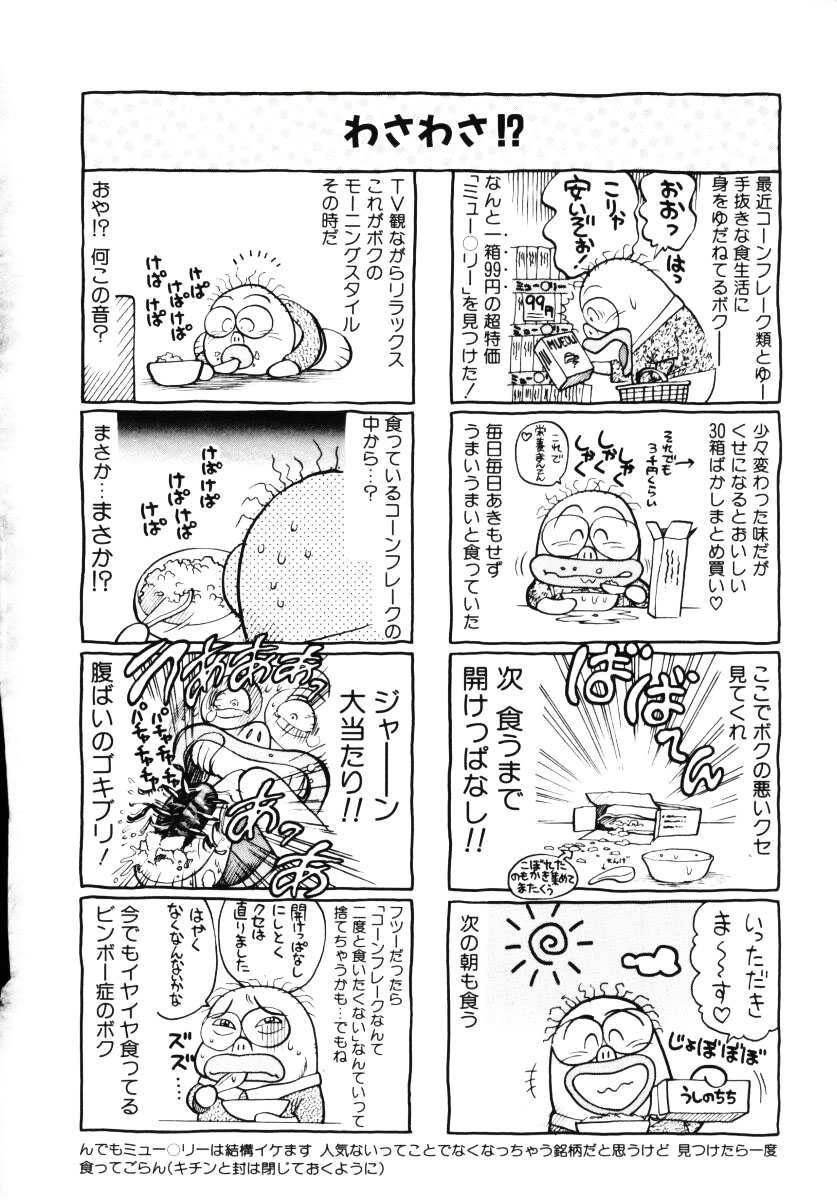 わさわさ!?
最近コーンフレーク類とゆー
手抜きな食生活に
身をゆだねてるボク──
おおっ
はっ
こりゃ
安いぞぉ!
ミュー○リー
99円
ミュー○リー
MUEOLI
なんと一箱99円の超特価
「ミュー○リー」を見つけた!
少々変わった味だが
くせになるとおいしい
30箱ばかしまとめ買い♡
それでも
3千円くらい
→
しゃく
しゃく
しゃく
これで
栄養まんてん
♡
毎日毎日あきもせず
うまいうまいと食っていた
ここでボクの悪いクセ
見てくれ
ばばば〜ん
次 食うまで
開けっぱなし!!
せんげ
こぼれた
のもかき集めて
またくう
いっただき
ま〜〜す♡
じょぼぼぼぼ
うしのちち
次の朝も食う
TV観ながらリラックス
これがボクの
モーニングスタイル
その時だ
けぱ
けぱけぱ
けぱ
けぱ
おや!? 何この音?
食っているコーンフレークの
中から…?
けぱけぱ
けぱ
けぱ
けぱ
まさか…まさか!?
ジャーーン
大当たり!!
うあぁあぁあっ
バチャバチャ
バチャバチャ
あっあっ
腹ばいのゴキブリ!
フツーだったら
「コーンフレークなんて
二度と食いたくない」なんていって
捨てちゃうかも…でもね
開けっぱなし
にしとく
クセは
直りました
はやく
なくなんないかな
ズズ…
ズ……
今でもイヤイヤ食ってる
ビンボー症のボク
んでもミュー○リーは結構イケます 人気ないってことでなくなっちゃう銘柄だと思うけど 見つけたら一度
食ってごらん(キチンと封は閉じておくように)